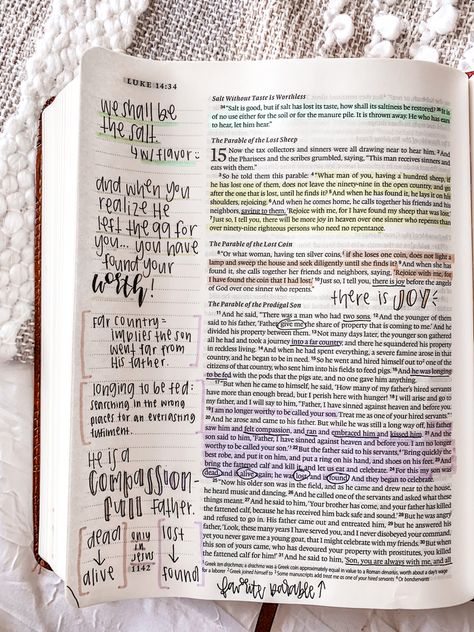 LUKE 14:34
we shall be
the salt.
4 w/ flavor :)
and when you
realize He
left the 99 for
you... you have
found your
worth!
far country =
implies the son
went far from
His father.
longing to be fed:
searching in the wrong
places for an everlasting
fulfilment.
He is a
compassion-
full father.
dead
↓
alive
only
in
Jesus
lost
↓
found
1142
Salt Without Taste Is Worthless
34 "Salt is good, but if salt has lost its taste, how shall its saltiness be restored? 35 It is
of no use either for the soil or for the manure pile. It is thrown away. He who has ears
to hear, let him hear."
The Parable of the Lost Sheep
15 Now the tax collectors and sinners were all drawing near to hear him. 2 And
the Pharisees and the scribes grumbled, saying, "This man receives sinners and
eats with them."
3 So he told them this parable: 4 "What man of you, having a hundred sheep, if
he has lost one of them, does not leave the ninety-nine in the open country, and go
after the one that is lost, until he finds it? 5 And when he has found it, he lays it on his
shoulders, rejoicing. 6 And when he comes home, he calls together his friends and his
neighbors, saying to them, 'Rejoice with me, for I have found my sheep that was lost.'
7 Just so, I tell you, there will be more joy in heaven over one sinner who repents than
over ninety-nine righteous persons who need no repentance.
The Parable of the Lost Coin
8 "Or what woman, having ten silver coins, if she loses one coin, does not light a
lamp and sweep the house and seek diligently until she finds it? 9 And when she has
found it, she calls together her friends and neighbors, saying, 'Rejoice with me, for
I have found the coin that I had lost.' 10 Just so, I tell you, there is joy before the angels
of God over one sinner who repents."
there is JOY!
The Parable of the Prodigal Son
11 And he said, "There was a man who had two sons. 12 And the younger of them
said to his father, 'Father, give me the share of property that is coming to me.' And he
divided his property between them. 13 Not many days later, the younger son gathered
all he had and took a journey into a far country, and there he squandered his property
in reckless living. 14 And when he had spent everything, a severe famine arose in that
country, and he began to be in need. 15 So he went and hired himself out to one of the
citizens of that country, who sent him into his fields to feed pigs. 16 And he was longing
to be fed with the pods that the pigs ate, and no one gave him anything.
17 "But when he came to himself, he said, 'How many of my father's hired servants
have more than enough bread, but I perish here with hunger! 18 I will arise and go to
my father, and I will say to him, "Father, I have sinned against heaven and before you.
19 I am no longer worthy to be called your son. Treat me as one of your hired servants."'
20 And he arose and came to his father. But while he was still a long way off, his father
saw him and felt compassion, and ran and embraced him and kissed him. 21 And the
son said to him, 'Father, I have sinned against heaven and before you. I am no longer
worthy to be called your son.' 22 But the father said to his servants, 'Bring quickly the
best robe, and put it on him, and put a ring on his hand, and shoes on his feet. 23 And
bring the fattened calf and kill it, and let us eat and celebrate. 24 For this my son was
dead, and is alive again; he was lost, and is found.' And they began to celebrate.
25 "Now his older son was in the field, and as he came and drew near to the house,
he heard music and dancing. 26 And he called one of the servants and asked what these
things meant. 27 And he said to him, 'Your brother has come, and your father has killed
the fattened calf, because he has received him back safe and sound.' 28 But he was angry
and refused to go in. His father came out and entreated him, 29 but he answered his
father, 'Look, these many years I have served you, and I never disobeyed your command,
yet you never gave me a young goat, that I might celebrate with my friends. 30 But when
this son of yours came, who has devoured your property with prostitutes, you killed
the fattened calf for him!' 31 And he said to him, 'Son, you are always with me, and all
Greek ten drachmas; a drachma was a Greek coin approximately equal in value to a Roman denarius, worth about a day's wage
for a laborer Greek joined himself to Some manuscripts add treat me as one of your hired servants Or bondservants
favorite parable ↑